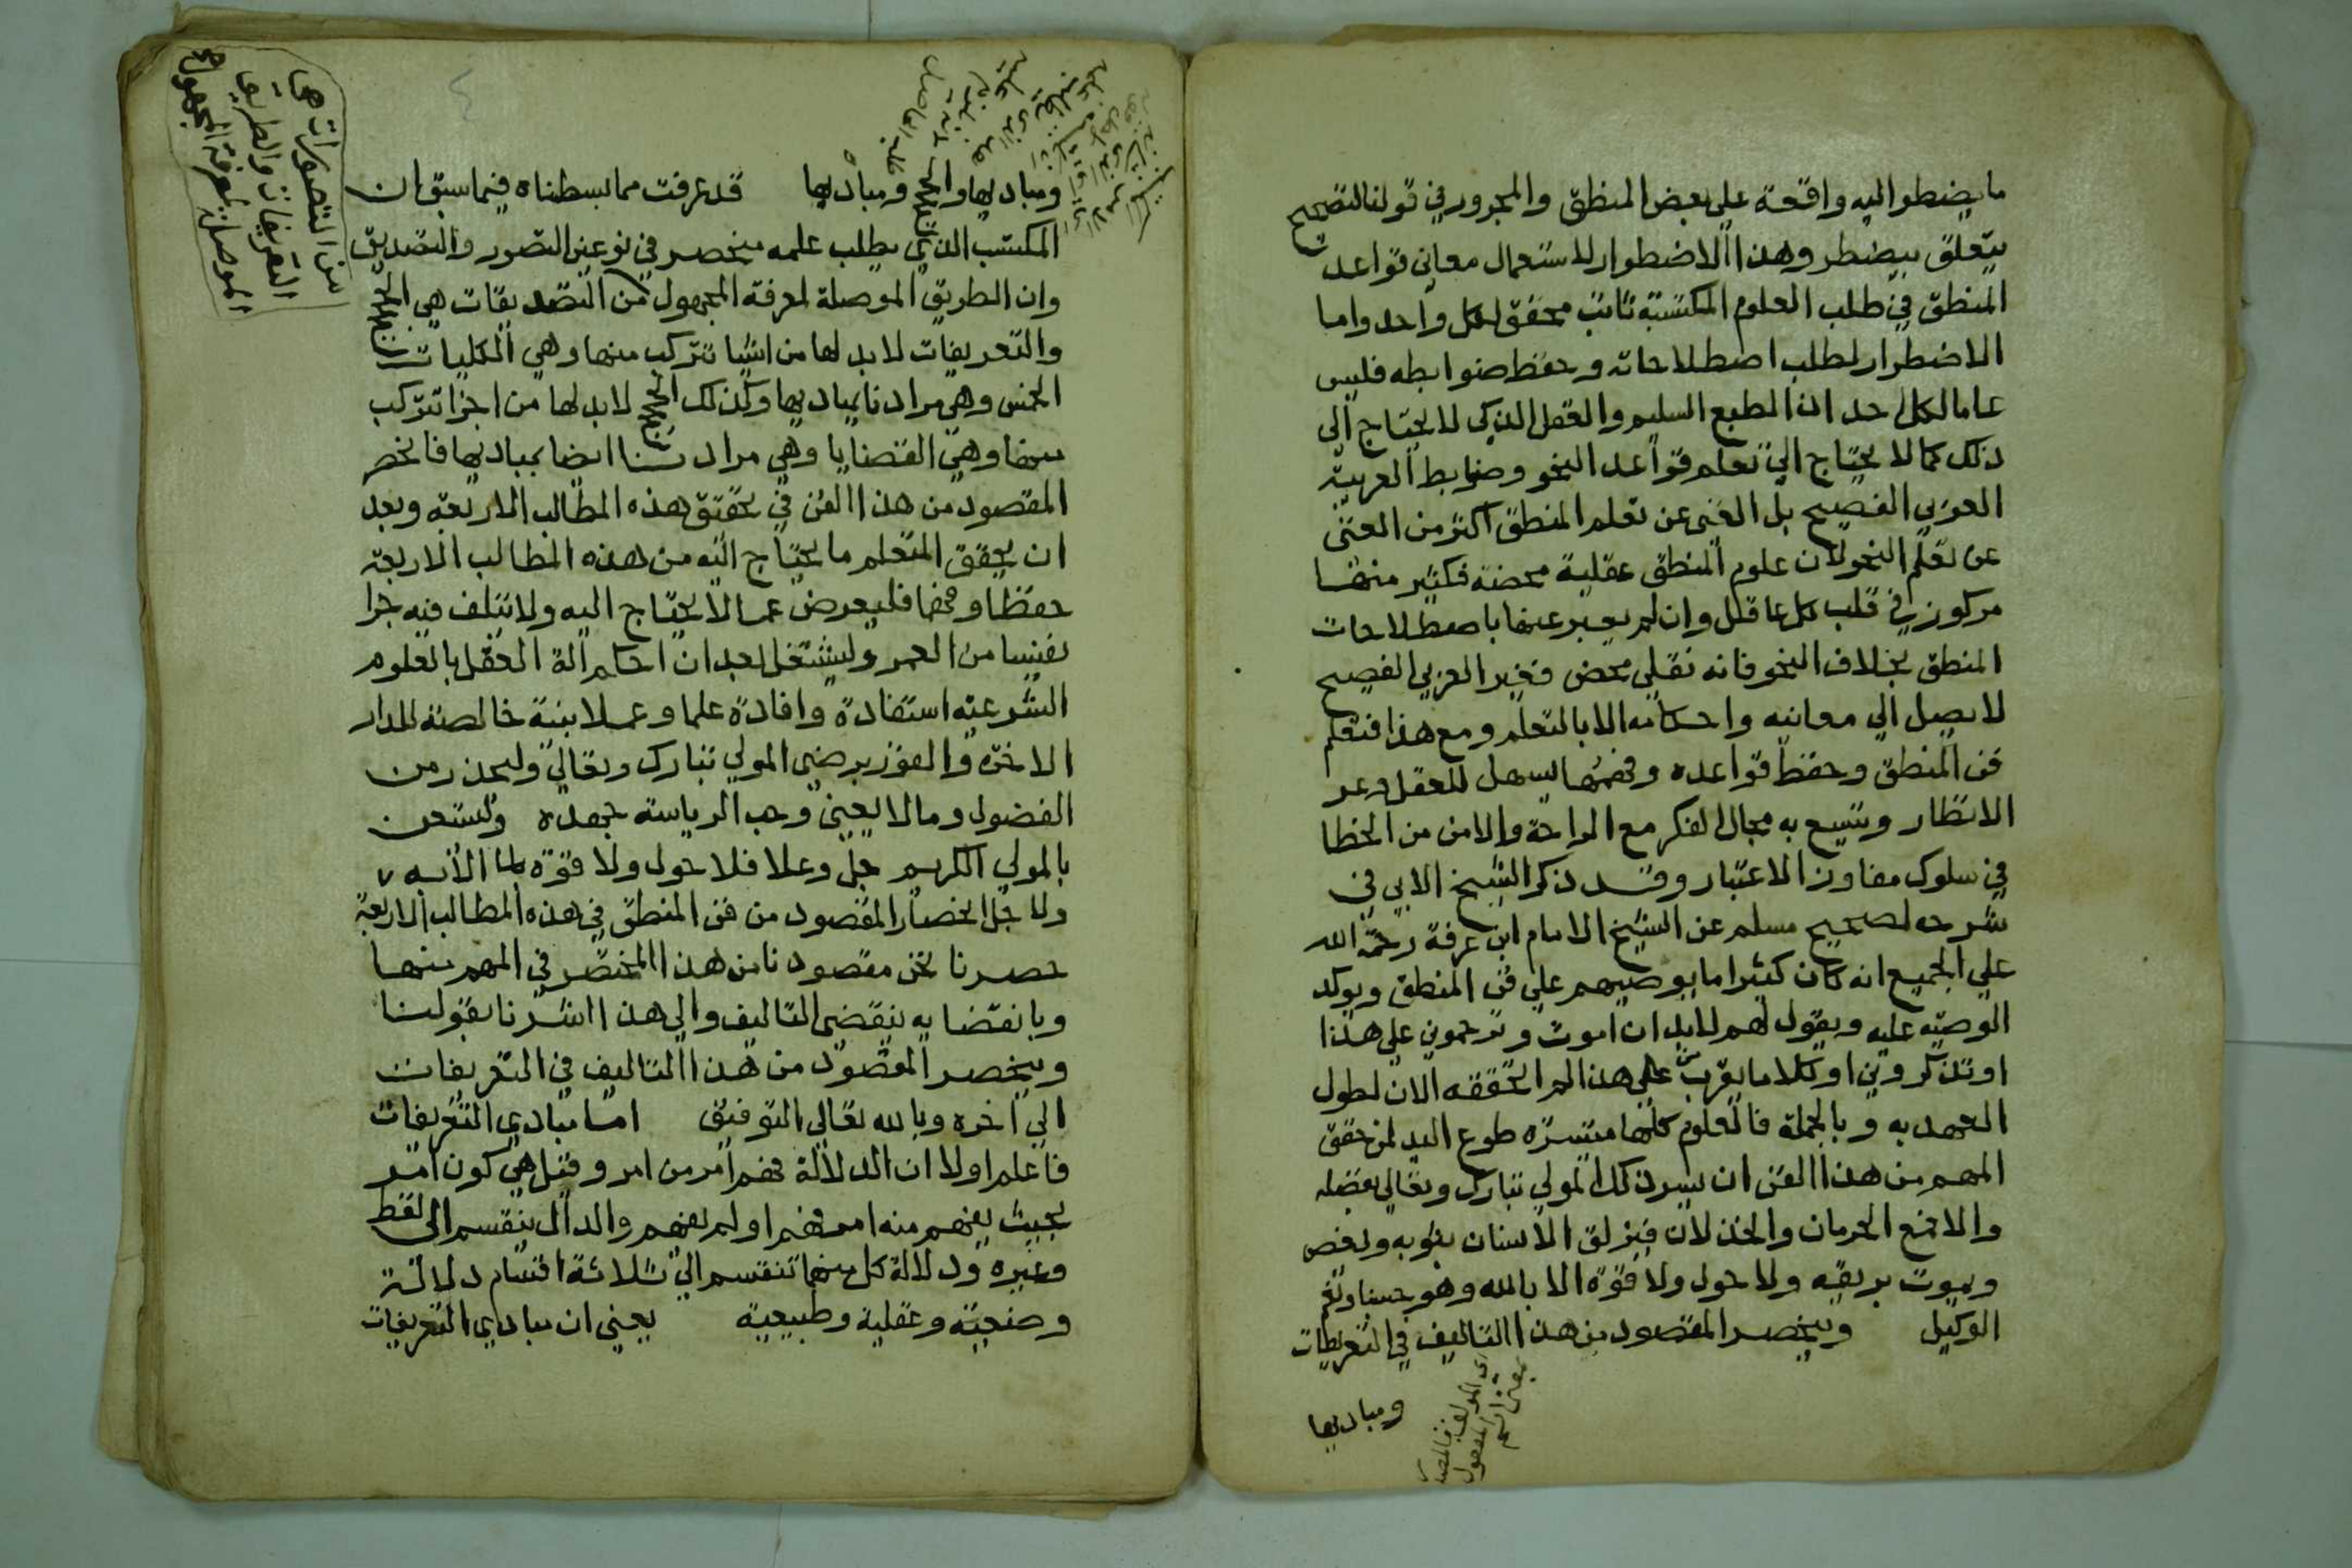 ما يضطر اليه واقعة علي بعض المنطق والمجرور في قولنا لتصحيح
يتعلق بيضطر وهذا الاضطرار لاستعمال معاني قواعد
المنطق في طلب العلوم المكتسبة ثابت محقق لكل واحد واما
الاضطرار لطلب اصطلاحاته وحفظ ضوابطه فليس
عاما لكل احد اذ الطبع السليم والعقل الذكي لا يحتاج الي
ذلك كما لا يحتاج الي تعلم قواعد النحو وضوابط العربية
العربي الفصيح بل الغني عن تعلم المنطق اكثر من الغني
عن تعلم النحو لان علوم المنطق عقلية محضة فكثير منها
مركوز في قلب كل عاقل وان لم يعبر عنها باصطلاحات
المنطق بخلاف النحو فانه نقلي محض فغير العربي الفصيح
لا يصل الي معانيه واحكامه الا بالتعلم ومع هذا فتعلم
فن المنطق وحفظ قواعده وفهمها يسهل للعقل وعر
الانظار ويتسع به مجال الفكر مع الراحة والامن من الخطا
في سلوك مفاوز الاعتبار وقد ذكر الشيخ الابي في
شرحه لصحيح مسلم عن الشيخ الامام ابن عرفة رحمة الله
علي الجميع انه كان كثيرا ما يوصيهم علي فن المنطق ويوكد
الوصية عليه ويقول لهم لابد ان اموت وترحموني علي هذا
او تذكروني او كلاما يقرب من هذا لم اتحققه الان لطول
العهد به وبالجملة فالعلوم كلها متيسرة طوع اليد لمن حقق
المهم من هذا الفن ان يسر ذلك المولي تبارك وتعالي بفضله
والا فمع الحرمان والخذلان فيزلق الانسان بثوبه ويغص
ويموت بريقه ولا حول ولا قوة الا بالله وهو حسبنا ونعم
الوكيل وينحصر المقصود من هذا التاليف في التعريفات
ومباديها
ومباديها والحجج ومباديها قد عرفت مما بسطناه فيما سبق ان
المكتسب الذي يطلب علمه منحصر في نوعين التصور والتصديق
وان الطريق الموصلة لمعرفة المجهول من التصديقات هي الحجج
من التصورات هي
التعريفات والطريق
الموصلة لمعرفة المجهول
والتعريفات لابد لها من اشيا تتركب منها وهي الكليات
الخمس وهي مرادنا بمباديها وكذلك الحجج لابد لها من اجزا تتركب
منها وهي القضايا وهي مرادنا ايضا بمباديها فانحصر
المقصود من هذا الفن في تحقق هذه المطالب الاربعة وبعد
ان يحقق المتعلم ما يحتاج اليه من هذه المطالب الاربعة
حفظا وفهما فليعرض عما لا يحتاج اليه ولا يتلف فيه جزا
نفيسا من العمر وليشتغل بعد ان احكم الة العقل بالعلوم
الشرعية استفادة وافادة علما وعملا بنية خالصة للدار
الاخرة والفوز برضي المولي تبارك وتعالي وليحذر من
الفضول وما لا يعني وحب الرياسة جهده وليستعن
بالمولي الكريم جل وعلا فلا حول ولا قوة لنا الا به
ولاجل انحصار المقصود من فن المنطق في هذه المطالب الاربعة
حصرنا نحن مقصودنا من هذا المختصر في المهم منها
وبانقضايه ينقضي التاليف والي هذا اشرنا بقولنا
وينحصر المقصود من هذا التاليف في التعريفات
الي اخره وبالله تعالي التوفيق اما مبادي التعريفات
فاعلم اولا ان الدلالة فهم امر من امر وقيل هي كون امر
بحيث يفهم منه امر فهم او لم يفهم والدال ينقسم الي لفظ
وغيره ودلالة كل منهما تنقسم الي ثلاثة اقسام دلالة
وضعية وعقلية وطبيعية يعني ان مبادي التعريفات